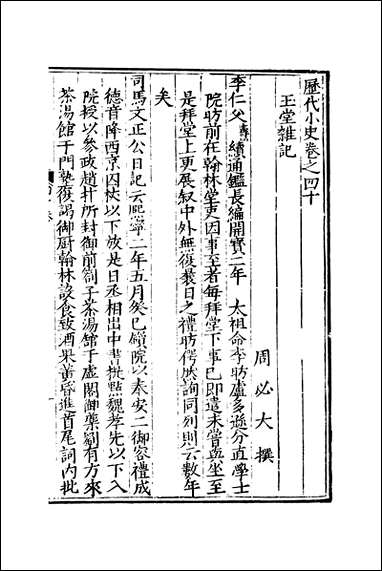 歷代小史卷之四十
玉堂雜記
周必大撰
李仁父燾續通鑑長編開寶二年 太祖命李昉盧多遜分直學士
院昉前在翰林堂吏因事至者每拜堂下事已即遣未嘗與坐至
是拜堂上更展叙中外無復曩日之禮昉愕然詢同列則云數年
矣
司馬文正公日記云熙寧二年五月癸巳鎖院以奉安二御容禮成
德音降西京囚杖以下放是日丞相出中書提點魏孝先以下入
院授以參政趙抃所封御前劄子茶湯館于虛閣御藥劉有方來
茶湯館于門塾復謁御厨翰林設食致酒果黃昏進首尾詞內批